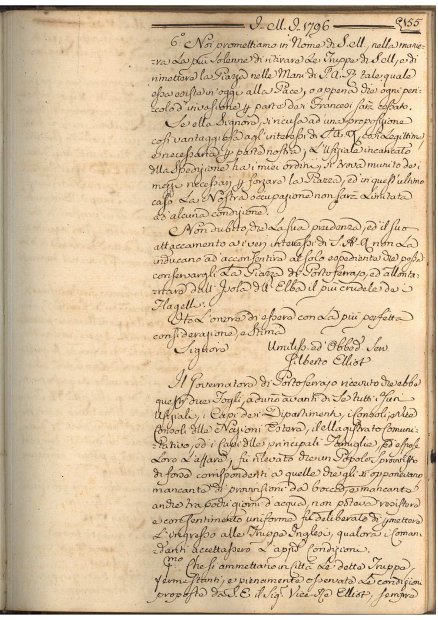 J. M. J. 1796
155
6.° Noi promettiamo in Nome di S. M. nella manie=
=ra la più solenne di ritirare le Truppe di S. M., e di
rimettere la Piazza nelle Mani di S. A. R. tale quale
essa esiste in oggi alla Pace, o appena che ogni peri=
colo d'invasione p parte dei Francesi sarà cessato.
Se ella Signore, si ricusa ad una proposizione
così vantaggiosa agl'interessi di S. A. R., così Legittima
e necessaria p parte nostra, L'Uffiziale incaricato
della Spedizione ha i miei ordini, e si trova munito de
mezzi necessari p forzare la Piazza, ed in quest'ultimo
caso La Nostra occupazione non sarà Limitata
ad alcuna condizione.
Non dubito, che La Sua prudenza, ed il suo
attaccamento ai veri interessi di S. A. R. non La
inducano ad acconsentire al solo espediente che possa
conservargli La Piazza di Porto ferrajo, ed allonta=
=nare dall'Isola dell'Elba il più crudele de
Flagelli.
Ho L'onore di essere con La più perfetta
considerazione, e Stima
Signore Umiliss. ed Obbed. Ser.
Gilberto Elliot
Il Governatore di Porto ferrajo ricevuto che ebbe
questi due Fogli, adunò avanti di Se tutti i suoi
Uffiziali, i Capi dei Dipartimenti, i Consoli, e Vice
Consoli delle Nazioni Estere, il Magistrato Comuni=
=tativo, ed i Capi delle principali Famiglie, ed espose
Loro L'affare; fu rilevato che un Popolo sprovvisto
di forze corrispondenti a quelle che gli si opponevano
mancante di provvisioni da bocca, e mancante
anche tra pochi giorni d'acqua, non poteva resistere
e con sentimento uniforme fu deliberato di permettere
L'ingresso alle Truppe Inglesi, qualora i Coman=
=danti accettassero L'appie Condizioni.
P.mo Che si ammettano in Città Le dette Truppe
ferme stanti, e pienamente osservate Le condizioni
proposte da S. E. il Sig. Vice Re Elliot, sempre